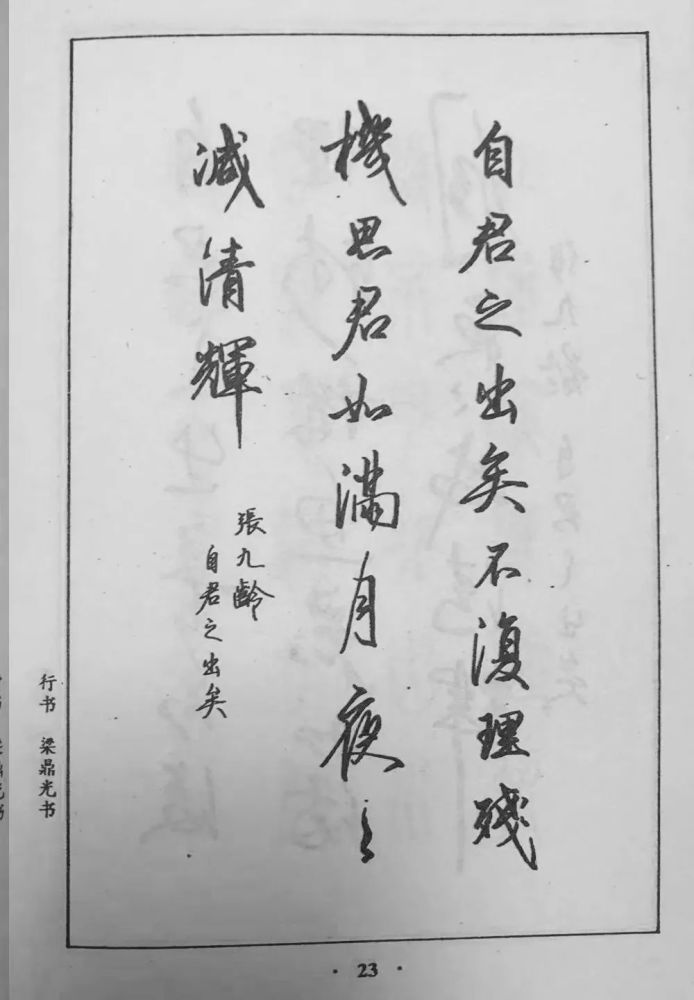 自君之出矣不復理殘
機思君如滿月夜々
減清輝
張九齡
自君之出矣
行书 梁鼎光书
· 23 ·